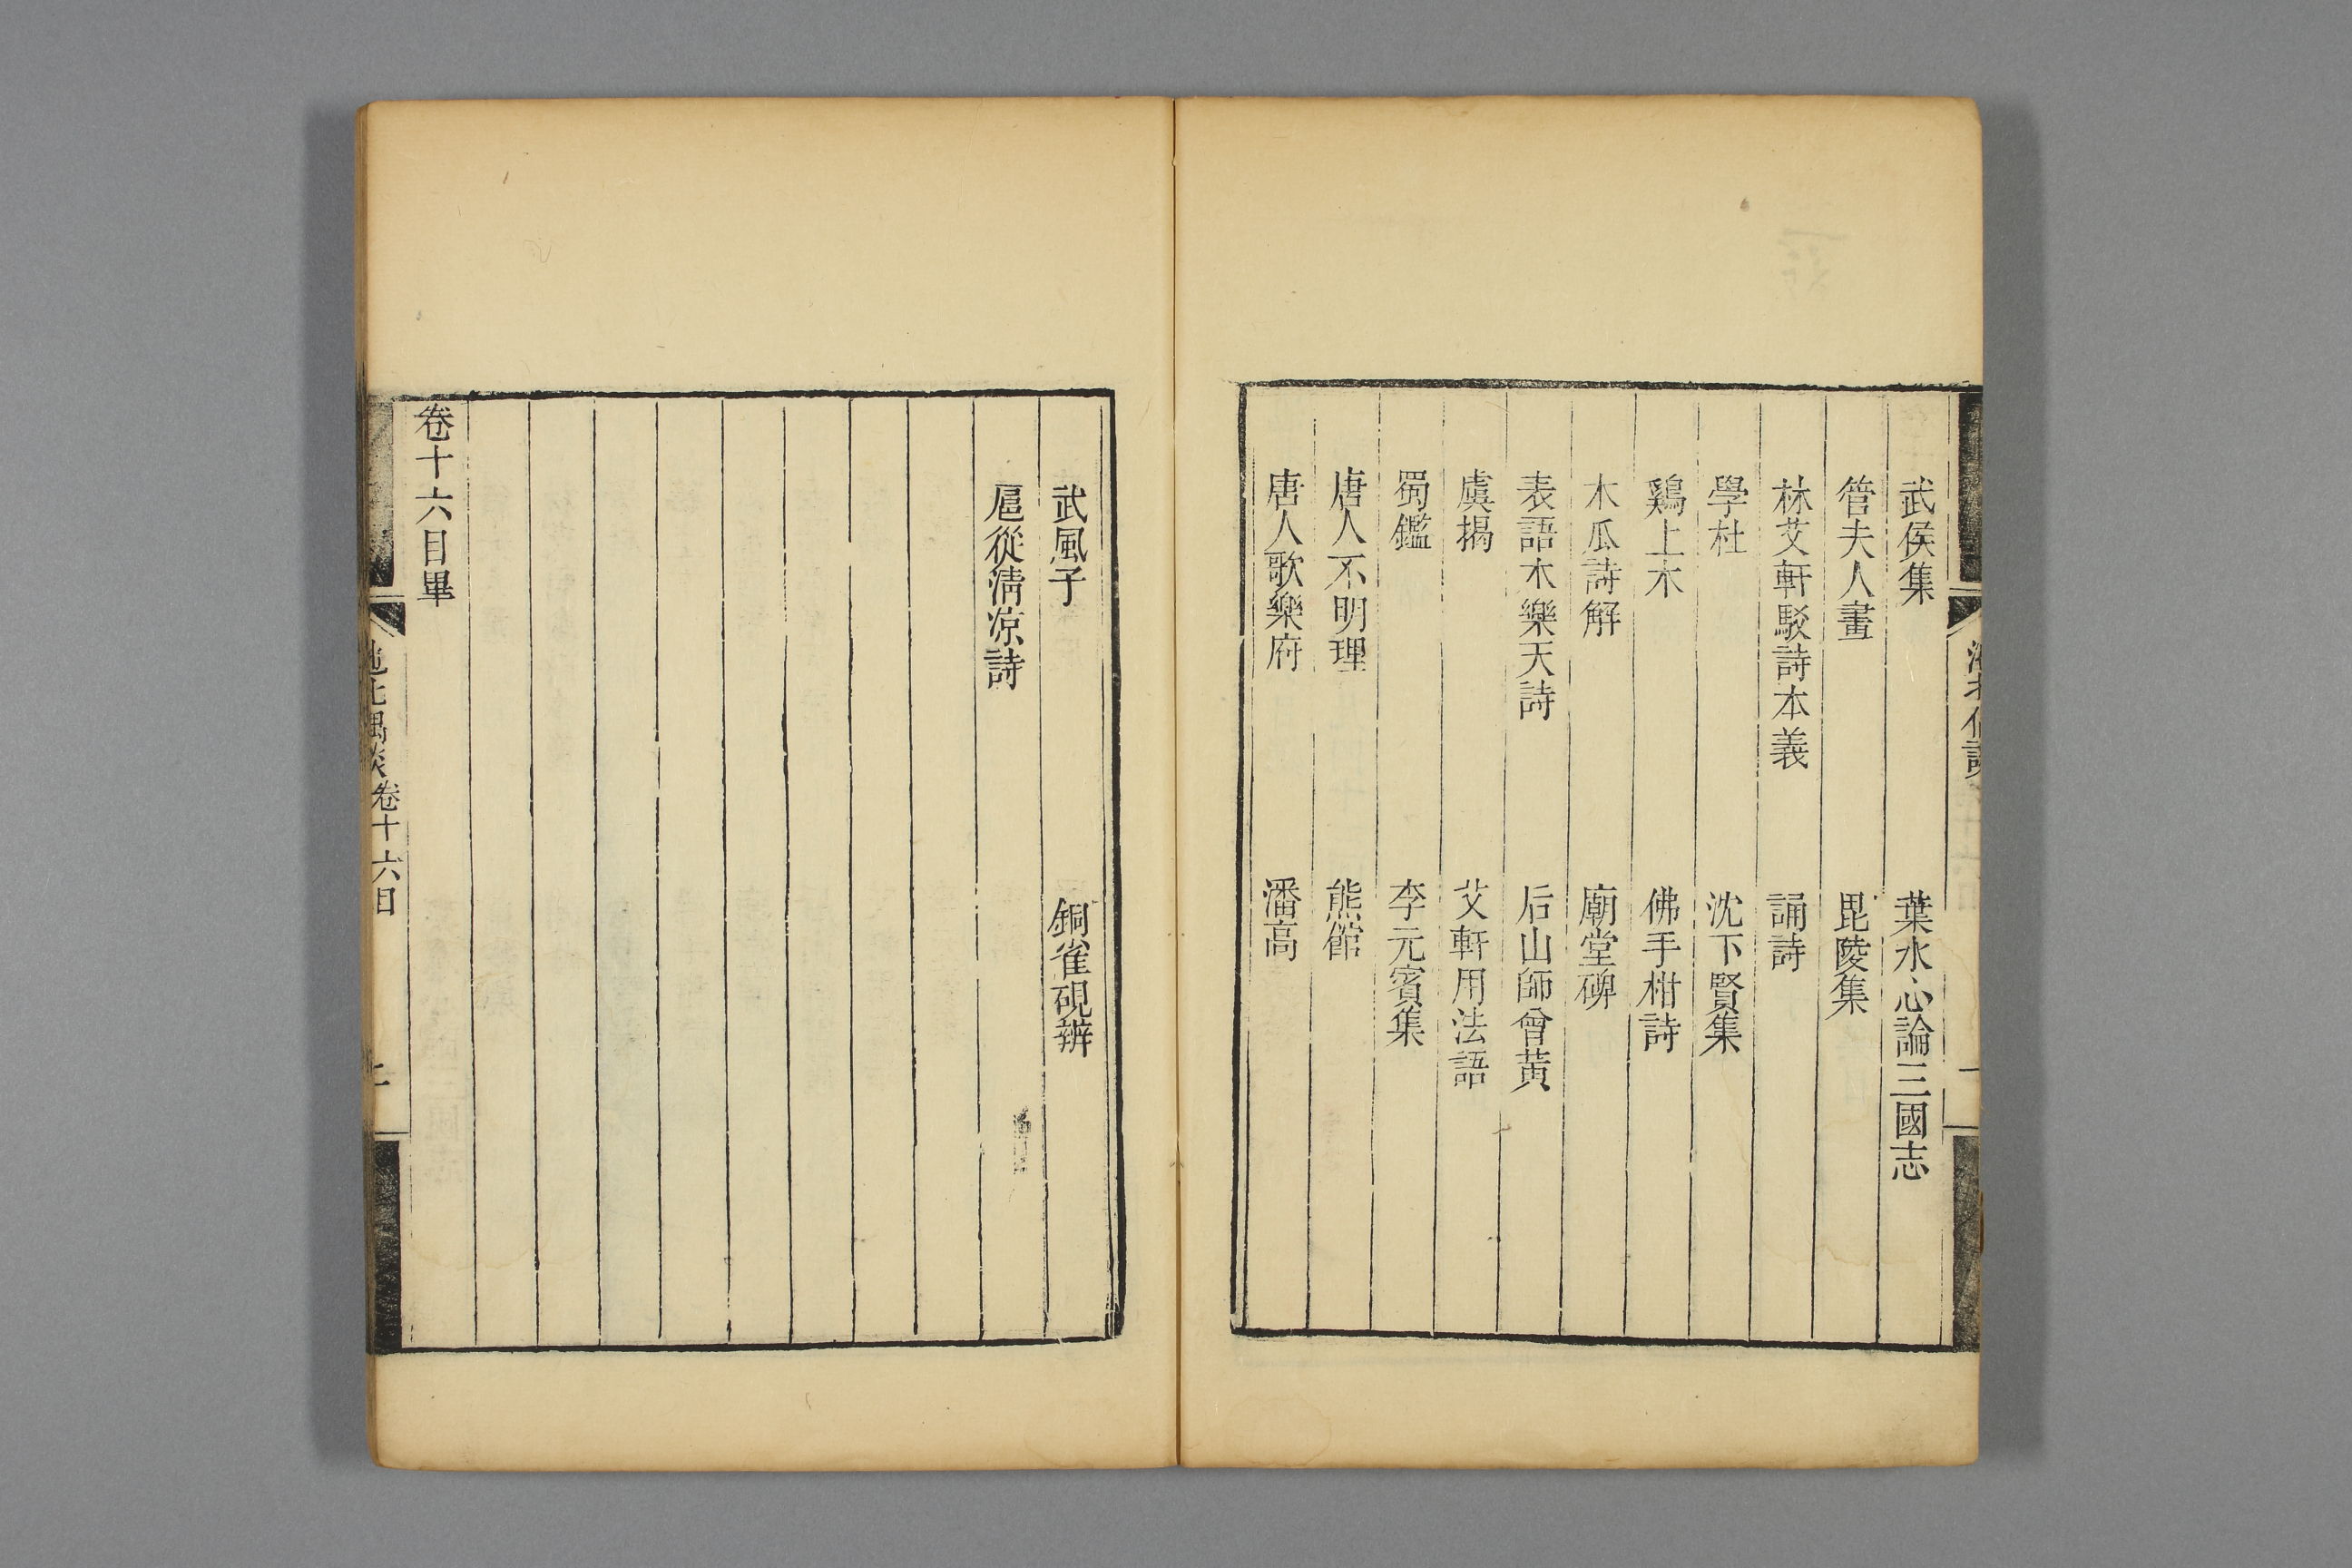 武侯集　葉水心論三國志
管夫人畫　毘陵集
林艾軒駁詩本義　誦詩
學杜　沈下賢集
鷄上木　佛手柑詩
木瓜詩解　廟堂碑
表語木樂天詩　后山師曾黃
虞揭　艾軒用法語
蜀鑑　李元賓集
唐人不明理　熊館
唐人歌樂府　潘高
武風子　銅雀硯辨
扈從清凉詩
卷十六目畢
池北偶談　卷十六目